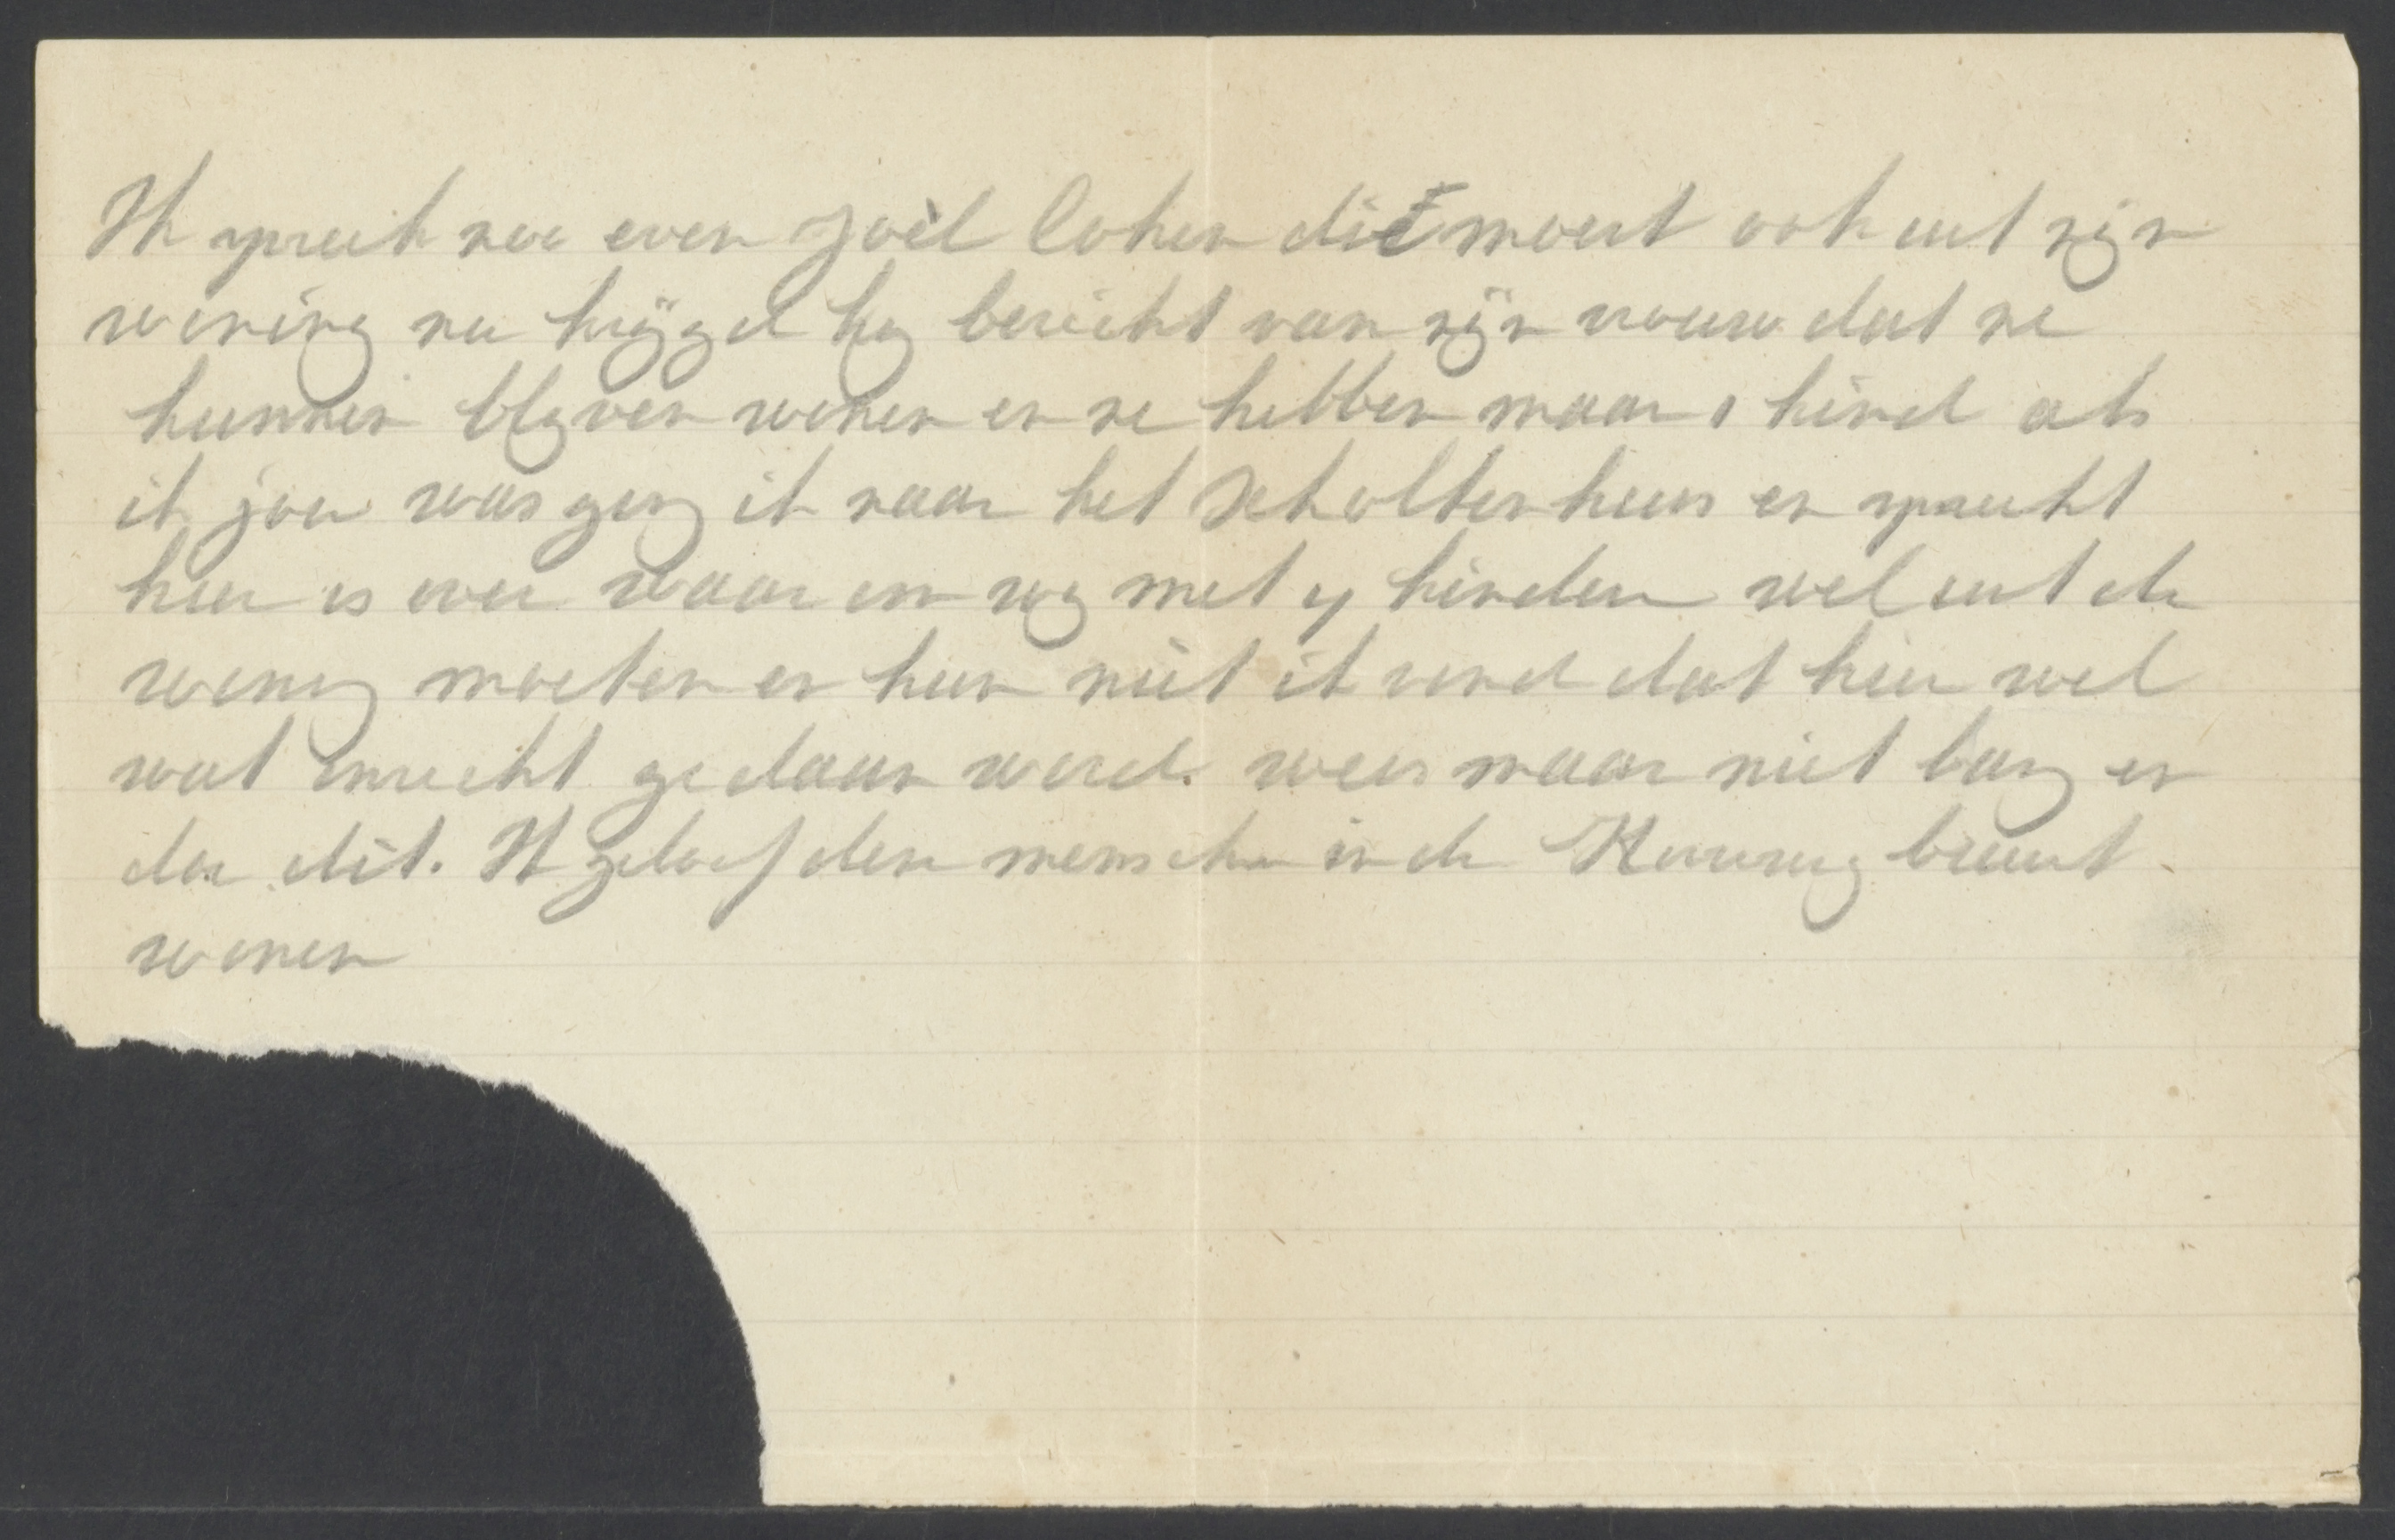 Ik spreek nou even Joël Cohen die moest ook uit zijn
woning nu krijgd hij bericht van zijn vrouw dat ze
kunnen blijven wonen en ze hebben maar 1 kind als
ik jou was ging ik naar het Scholtenhuis en spreekt
hier is over waarom wij met 4 kinderen wel uit de
woning moeten en hun niet ik vind dat hier wel
wat onrecht gedaan werd. wees maar niet bang en
doe dit. Ik geloof den menschen in de buurt
wonen